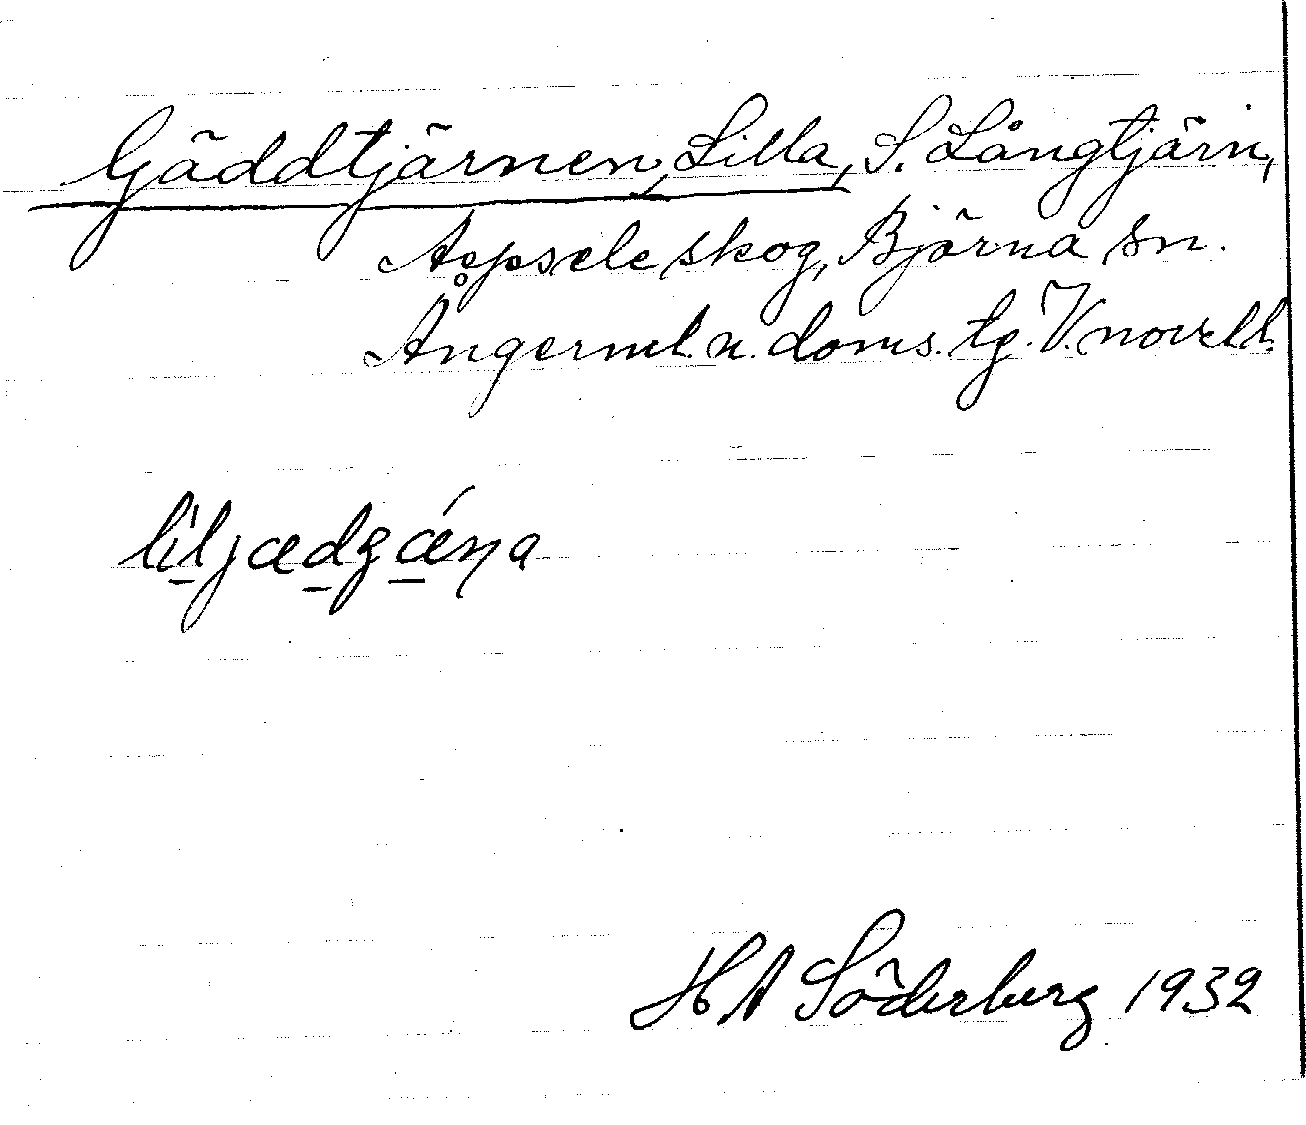 Gäddtjärnen, Lilla, S. Långtjärn,
Aspsele skog, Björna sn.
Ångerml. n. doms. tg. V. novell.
liljædʒǽṇa
H A Söderberg 1932